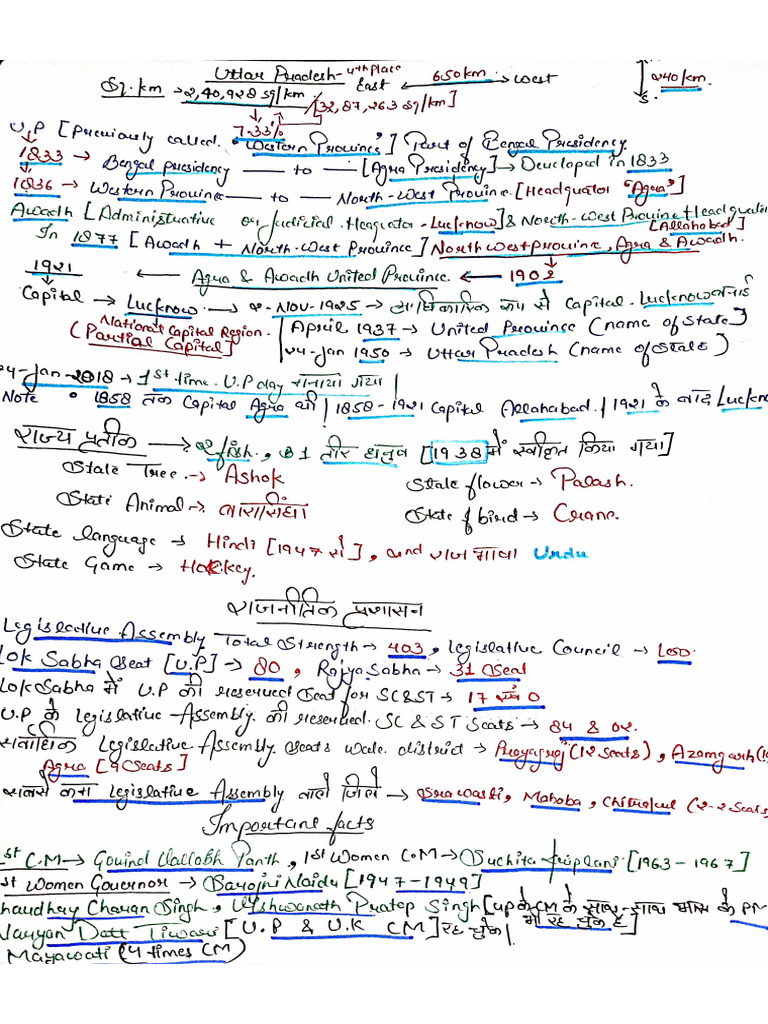 Uttar Pradesh - 4th Place
Sq. km → 2,40,928 sq/km East ← 650km → West 240km.
[32,87,263 sq/km] S.
7.33%
U.P [Previously called. "Western Province"] Part of Bengal Presidency.
1833 → Bengal presidency — to — [Agra Presidency] → Developed in 1833
1836 → Western Province — to — North-West Province. [Headquator "Agra"]
Awadh [Administrative or Judicial Heaquator - Lucknow] & North-West Province Headquator
[Allahabad]
In 1877 [Awadh + North-West Province] North west province, Agra & Awadh.
1921 ← Agra & Awadh United Province ← 1902
Capital → Lucknow → 2-NOV-1925 → आधिकारिक रूप से Capital. Lucknow बनाई
National Capital Region. April 1937 → United Province (name of State)
(Partial Capital] 24-Jan 1950 → Uttar Pradesh (name of State)
24-Jan-2018 → 1st time U.P day मनाया गया
Note • 1858 तक Capital Agra थी / 1858-1921 Capital Allahabad. / 1921 के बाद Lucknow
राज्य प्रतीक → 2 fish, & 1 तीर धनुष [1938 में स्वीकृत किया गया]
State Tree → Ashok State flower → Palash.
State Animal → बारासिंघा State bird → Crane.
State language → Hindi [1947 से], and राज भाषा Urdu
State Game → Hockey.
राजनीतिक प्रशासन
Legislative Assembly Total Strength → 403, legislative Council → 100.
Lok Sabha Seat [U.P] → 80, Rajya Sabha → 31 Seat
Lok Sabha में U.P की reserved Seat for SC&ST → 17 एवं 0
U.P के legislative Assembly की reserved SC & ST Seats → 84 & 02.
सर्वाधिक legislative Assembly Seats wale district → Prayagraj (12 Seats), Azamgarh
Agra [9 Seats]
सबसे कम legislative Assembly वाले जिले → Srawasti, Mahoba, Chitrakut (2-2 Seats
Important facts
1st C.M → Govind Vallabh Panth, 1st Women C.M → Suchita Kriplani [1963-1967]
1st Women Governor → Sarojni Naidu [1947-1949]
Chaudhary Charan Singh, Vishwanath Pratap Singh [UP के CM के साथ-साथ भारत के PM
भी रह चुके है]
Narayan Datt Tiwari [U.P & U.K CM] रह चुके
Mayawati (4 times CM)